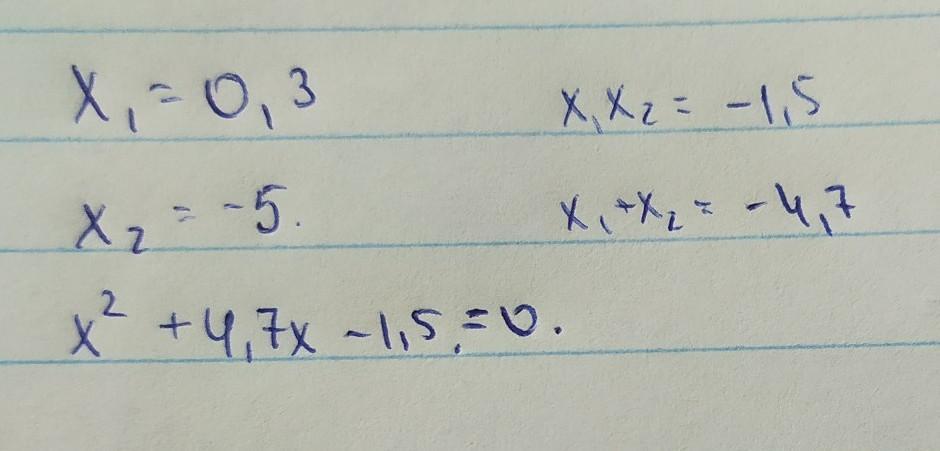 x₁ = 0,3
x₁x₂ = -1,5
x₂ = -5.
x₁+x₂ = -4,7
x² +4,7x -1,5 = 0.